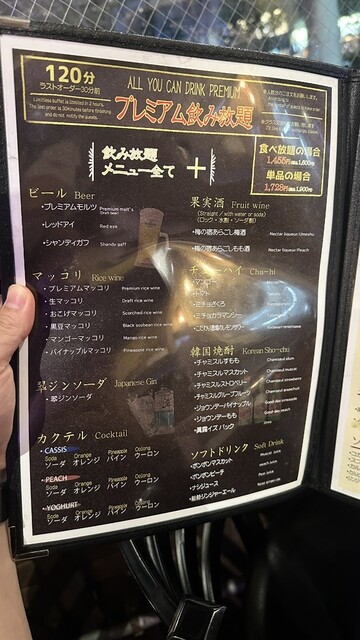 120分
ラストオーダー30分前
Limitless buffet is limited in 2 hours.
The last order is 30minutes before finishing
and do not, notify the guests.
ALL YOU CAN DRINK PREMIUM
プレミアム飲み放題
飲み放題
メニュー全て ＋
食べ放題の場合
1,455円
単品の場合
1,728円
ビール Beer
・プレミアムモルツ Premium malt's Draft beer
・レッドアイ Red eye
・シャンディガフ Shandy gaff
果実酒 Fruit wine
(Straight / with water or soda)
(ロック・水割・ソーダ割)
・梅の宿あらごし梅酒 Nectar liqueur-Umeshu
・梅の宿あらごしもも酒 Nectar liqueur-Peach
マッコリ Rice wine
・プレミアムマッコリ Premium rice wine
・生マッコリ Draft rice wine
・おこげマッコリ Scorched-rice wine
・黒豆マッコリ Black soybean rice wine
・マンゴーマッコリ Mango rice wine
・パイナップルマッコリ Pineapple rice wine
Chu-hi
翠ジンソーダ Japanese Gin
・翠ジンソーダ
韓国焼酎 Korean Sho-chu
・チャミスルすもも Chamisul plum
・チャミスルマスカット Chamisul muscat
・チャミスルストロベリー Chamisul strawberry
・チャミスルグレープフルーツ Chamisul grapefruit
・ジョウンデーパイナップル
・ジョウンデーもも
カクテル Cocktail
・CASSIS
Soda Orange Pineapple Oolong
ソーダ オレンジ パイン ウーロン
・PEACH
Soda Orange Pineapple Oolong
ソーダ オレンジ パイン ウーロン
・YOGHURT
Soda Orange Pineapple Oolong
ソーダ オレンジ パイン ウーロン
ソフトドリンク Soft Drink
・ボンボンマスカット
・ボンボンピーチ
・ナシジュース